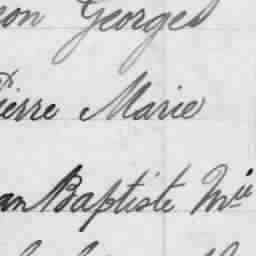 on Georges
ierre Marie
an Baptiste Mie